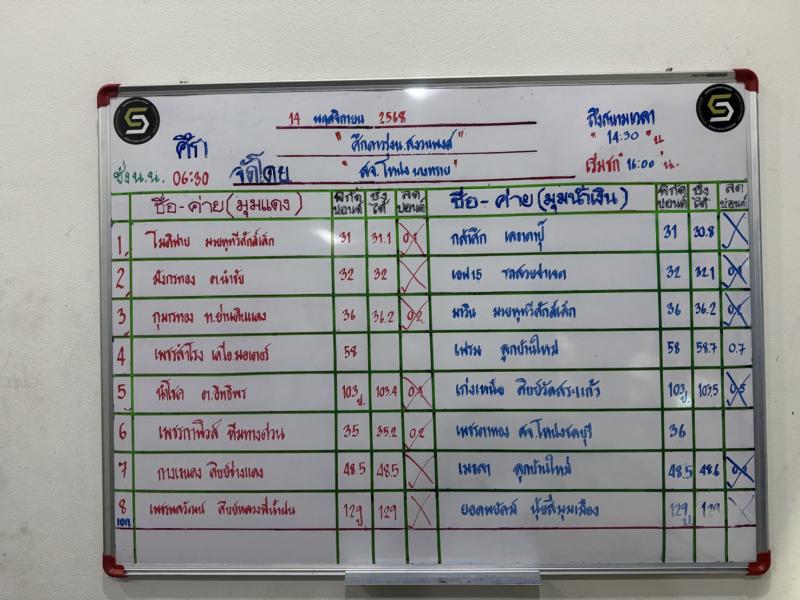 14 พฤศจิกายน 2568
ถึงสนามเวลา
"14:30" น
ศึก
"ศึกดาวรุ่งน.สงวนพงศ์"
ชั่ง น.น. 06:30
จัดโดย
"สจ.โหน่ง บางทราย"
เริ่มชก 16:00 น.
ชื่อ-ค่าย (มุมแดง) พิกัด ปอนด์ ชั่งได้ ลดปอนด์ ชื่อ-ค่าย (มุมน้ำเงิน) พิกัด ปอนด์ ชั่งได้ ลดปอนด์
1. 31 31.1 0.1 31 30.8
2 มังกรทอง ต.นำชัย 32 32 เอฟ15 32 32.1 0.1
3 กุมารทอง ท.ย่านดินแดง 36 36.2 0.2 นาวิน นายทุทวีศักดิ์เล็ก 36 36.2 0.2
4 เพชรสำโรง เคโอ.มอเตอร์ 58 เฟรม ลูกบ้านใหม่ 58 58.7 0.7
5 นำโชค ต.อิทธิพร 103 ปู 103.4 0.4 เก่งเหนือ ศิษย์วัดสระแก้ว 103 ปู 103.5 0.5
6 เพชรกาฬวิวส์ ทีมทางด่วน 35 35.2 0.2 เพชรตาทอง สจ.โหน่งชลบุรี 36
7 กางเขนดง ศิษย์ช่างแดง 48.5 48.5 เมขลา ลูกบ้านใหม่ 48.5 48.6 0.1
8 เอก เพชรพลวัฒน์ ศิษย์หลวงพี่น้ำฝน 129 ปู 129 ยอดพยัคฆ์ นุ้ยสี่มุมเมือง 129 ปู 129